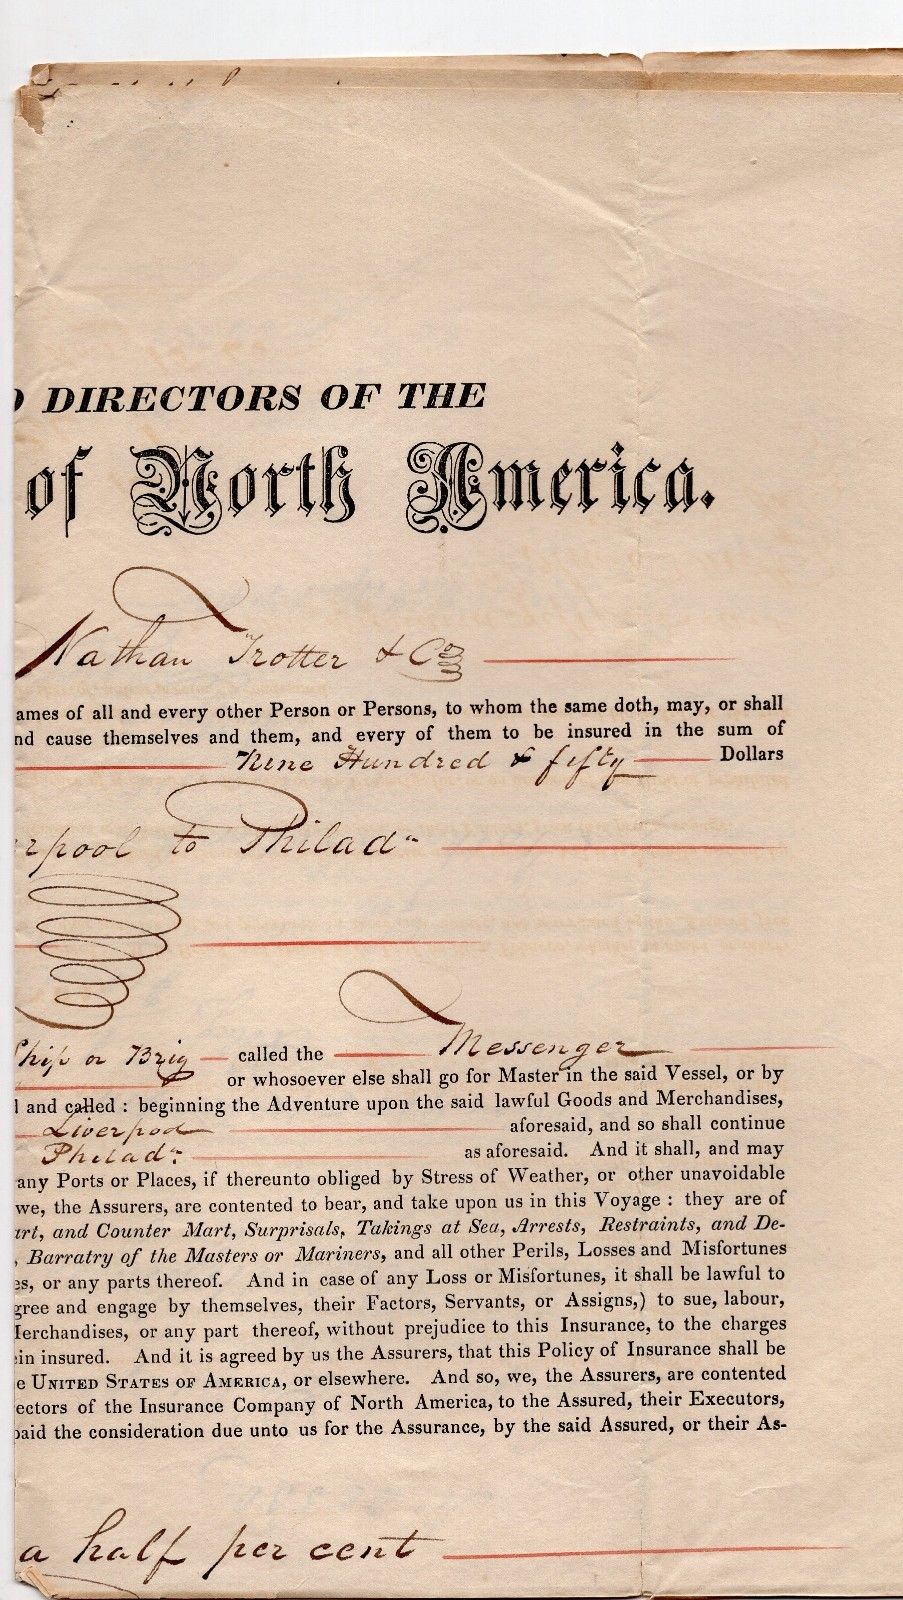 DIRECTORS OF THE
of North America.
Nathan Trotter & Co
ames of all and every other Person or Persons, to whom the same doth, may, or shall
nd cause themselves and them, and every of them to be insured in the sum of
Nine Hundred & fifty Dollars
rpool to Philada
Ship or Brig called the Messenger
or whosoever else shall go for Master in the said Vessel, or by
l and called : beginning the Adventure upon the said lawful Goods and Merchandises,
Liverpool aforesaid, and so shall continue
Philada as aforesaid. And it shall, and may
any Ports or Places, if thereunto obliged by Stress of Weather, or other unavoidable
we, the Assurers, are contented to bear, and take upon us in this Voyage : they are of
art, and Counter Mart, Surprisals, Takings at Sea, Arrests, Restraints, and De-
, Barratry of the Masters or Mariners, and all other Perils, Losses and Misfortunes
es, or any parts thereof. And in case of any Loss or Misfortunes, it shall be lawful to
gree and engage by themselves, their Factors, Servants, or Assigns,) to sue, labour,
Merchandises, or any part thereof, without prejudice to this Insurance, to the charges
ein insured. And it is agreed by us the Assurers, that this Policy of Insurance shall be
e UNITED STATES OF AMERICA, or elsewhere. And so, we, the Assurers, are contented
ectors of the Insurance Company of North America, to the Assured, their Executors,
paid the consideration due unto us for the Assurance, by the said Assured, or their As-
a half per cent